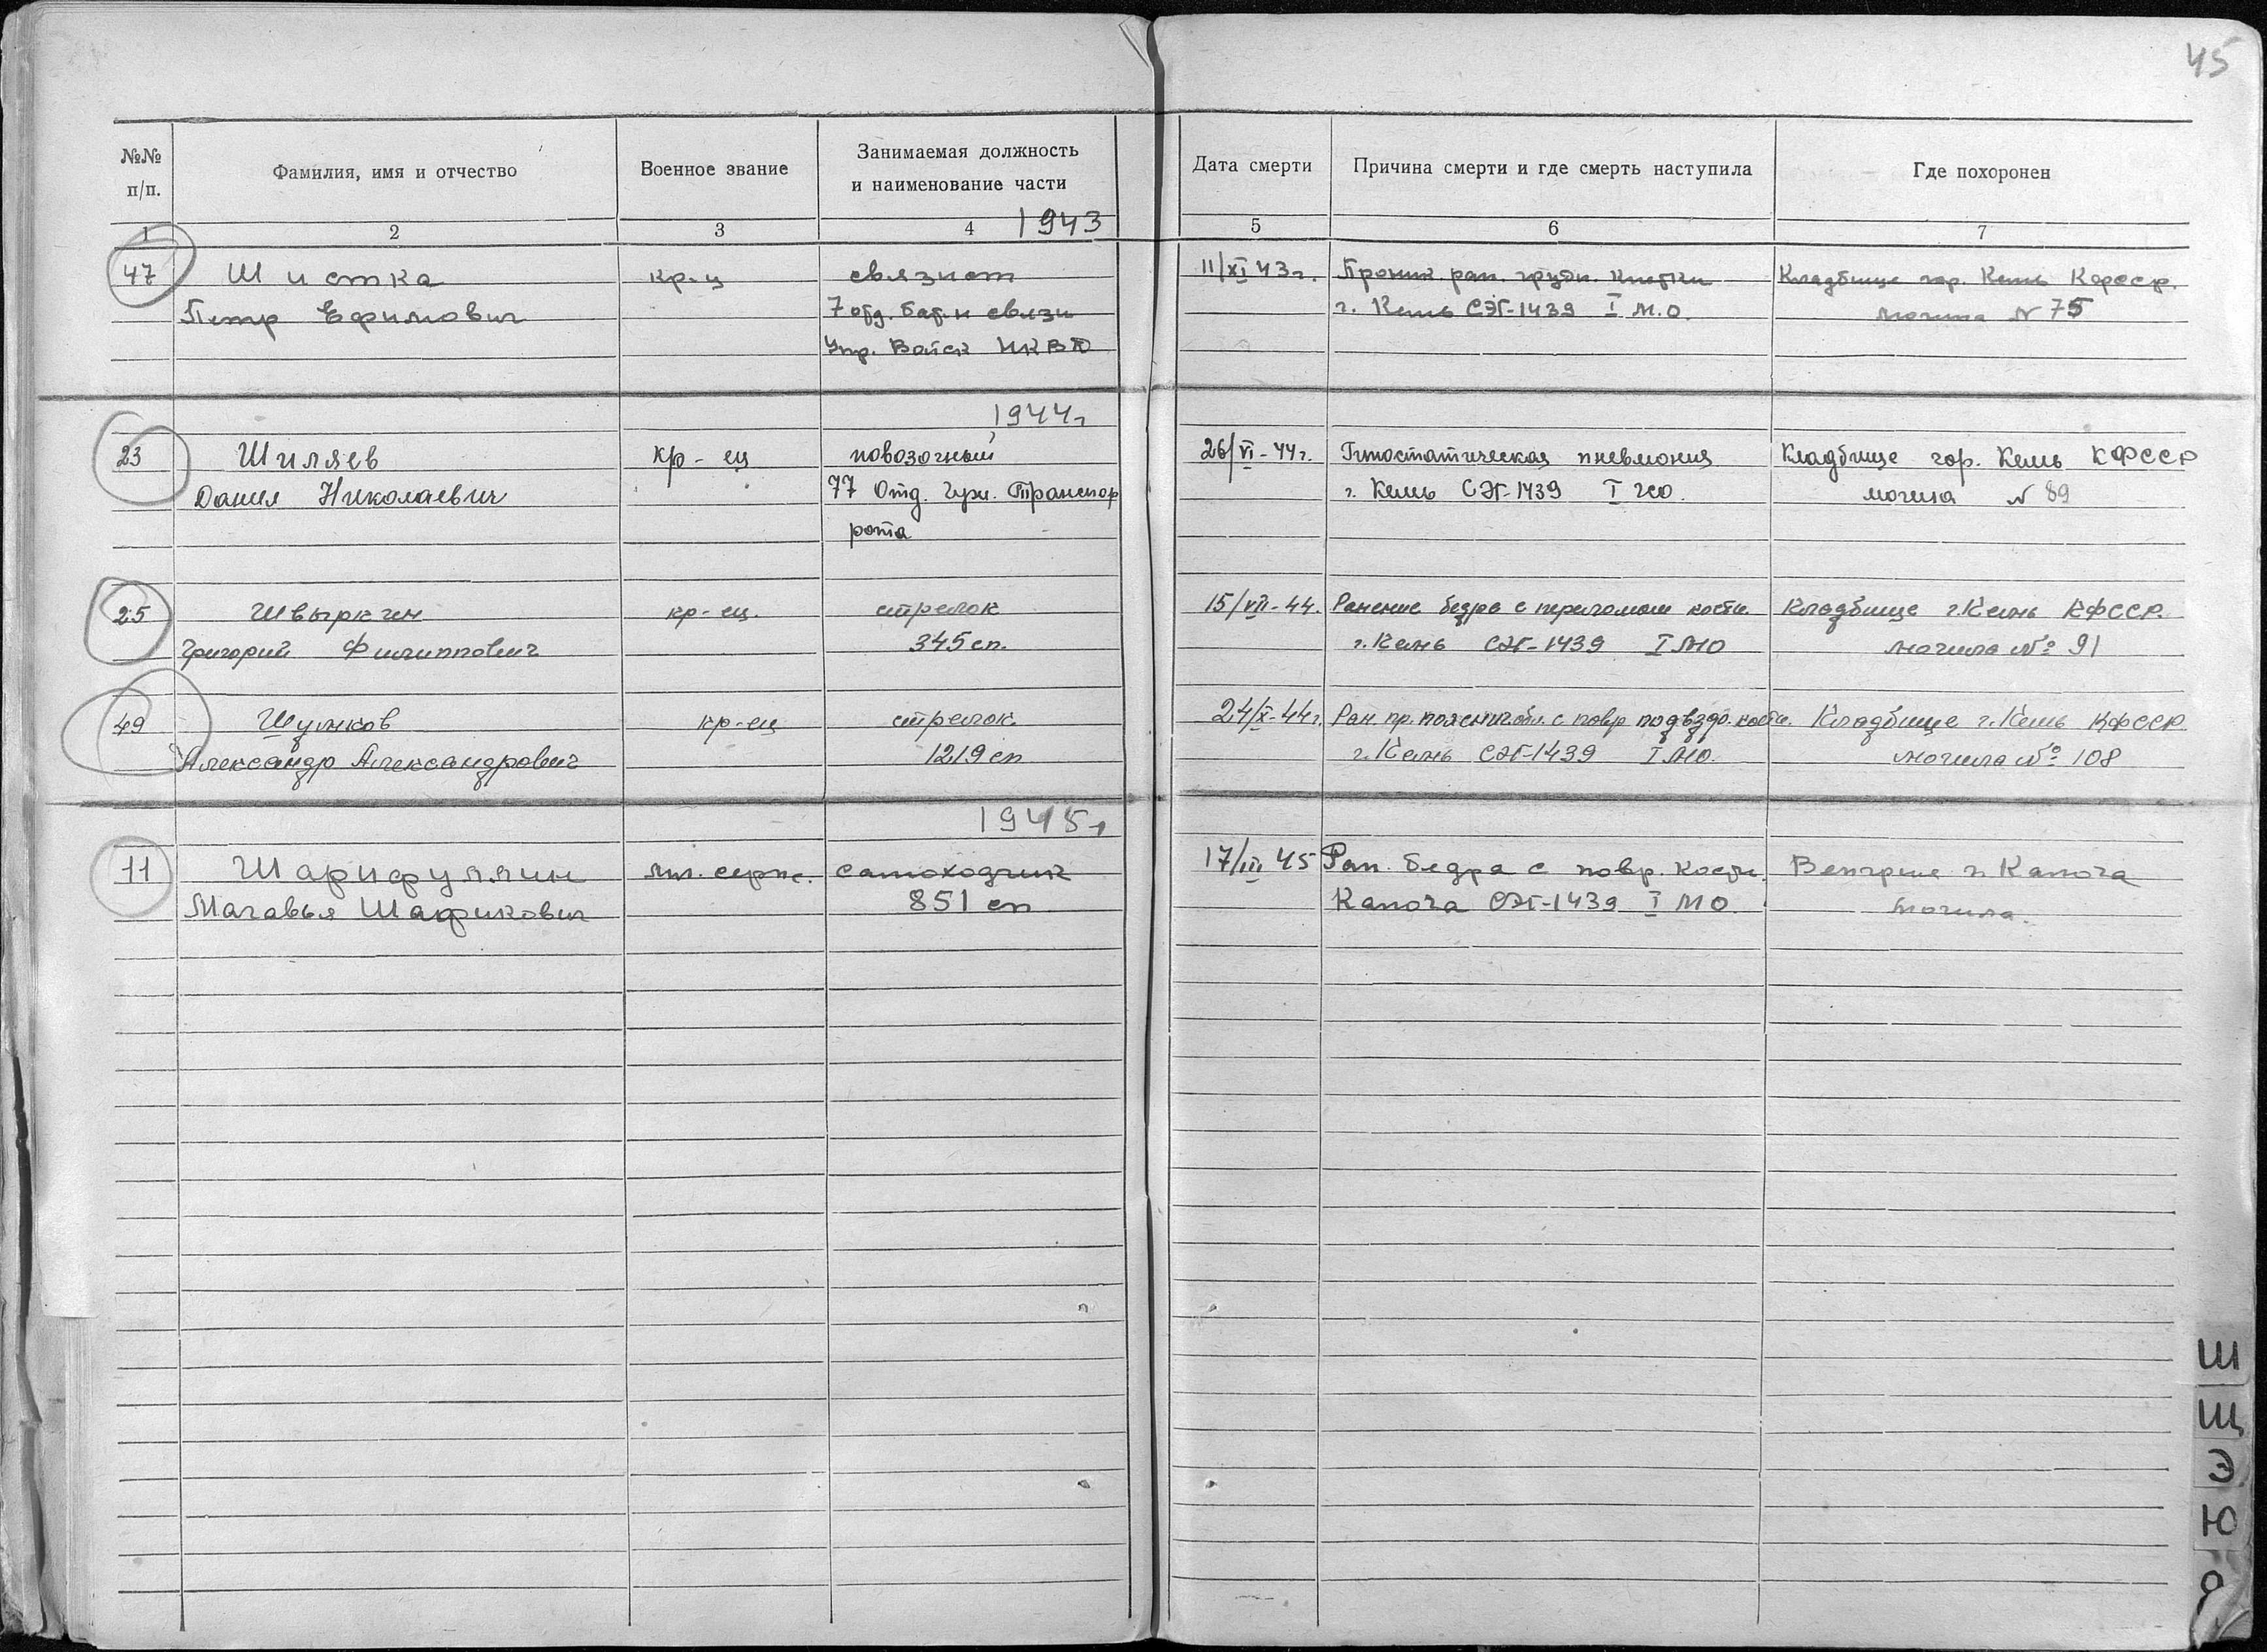 45
№№ п/п.
Фамилия, имя и отчество
Военное звание
Занимаемая должность
и наименование части
Дата смерти
Причина смерти и где смерть наступила
Где похоронен
1 2 3 4 1943 5 6 7
47 Шистка кр-ц связист 11/XI 43г. Проник. ран. грудн. клетки Кладбище гор. Кемь Кфсср.
Петр Ефимович 7 отд. бат-н связи г. Кемь СЭГ-1439 I м.о. могила N 75
Упр. Войск НКВД
1944г
23 Шиляев кр-ец повозочный 26/VI-44г. Гипостатическая пневмония Кладбище гор. Кемь КФССР
Данил Николаевич 77 Отд. Гуж. Транспор г. Кемь СЭГ-1439 I N 89
могила
рота
25 Швыркин кр-ец. стрелок 15/VII-44. Ранение бедра с переломом кости Кладбище г. Кемь КФССР.
Григорий Филиппович 345 сп. г. Кемь СЭГ-1439 I МО могила № 91
49 Шулжков кр-ец стрелок 24/X-44г. Ран. пр. пояснич обл. с повр подвздо. кости. Кладбище г. Кемь КФССР
Александр Александрович 1219 сп г. Кемь СЭГ-1439 I МО. могила № 108
1945г
11 Шарифуллин мл. серж. самоходчик 17/III 45 Ран. бедра с повр. кости. Венгрия г. Капоча
Магавья Шафикович 851 сп Капоча СЭГ-1439 I МО. могила.
Ш
Щ
Э
Ю